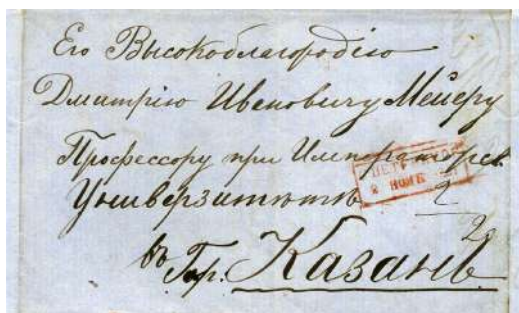 Его Высокоблагородію
Дмитрію Ивановичу Мейеру
Профессору при Императорск.
Универзитетѣ
2
20
въ Гор. Казань